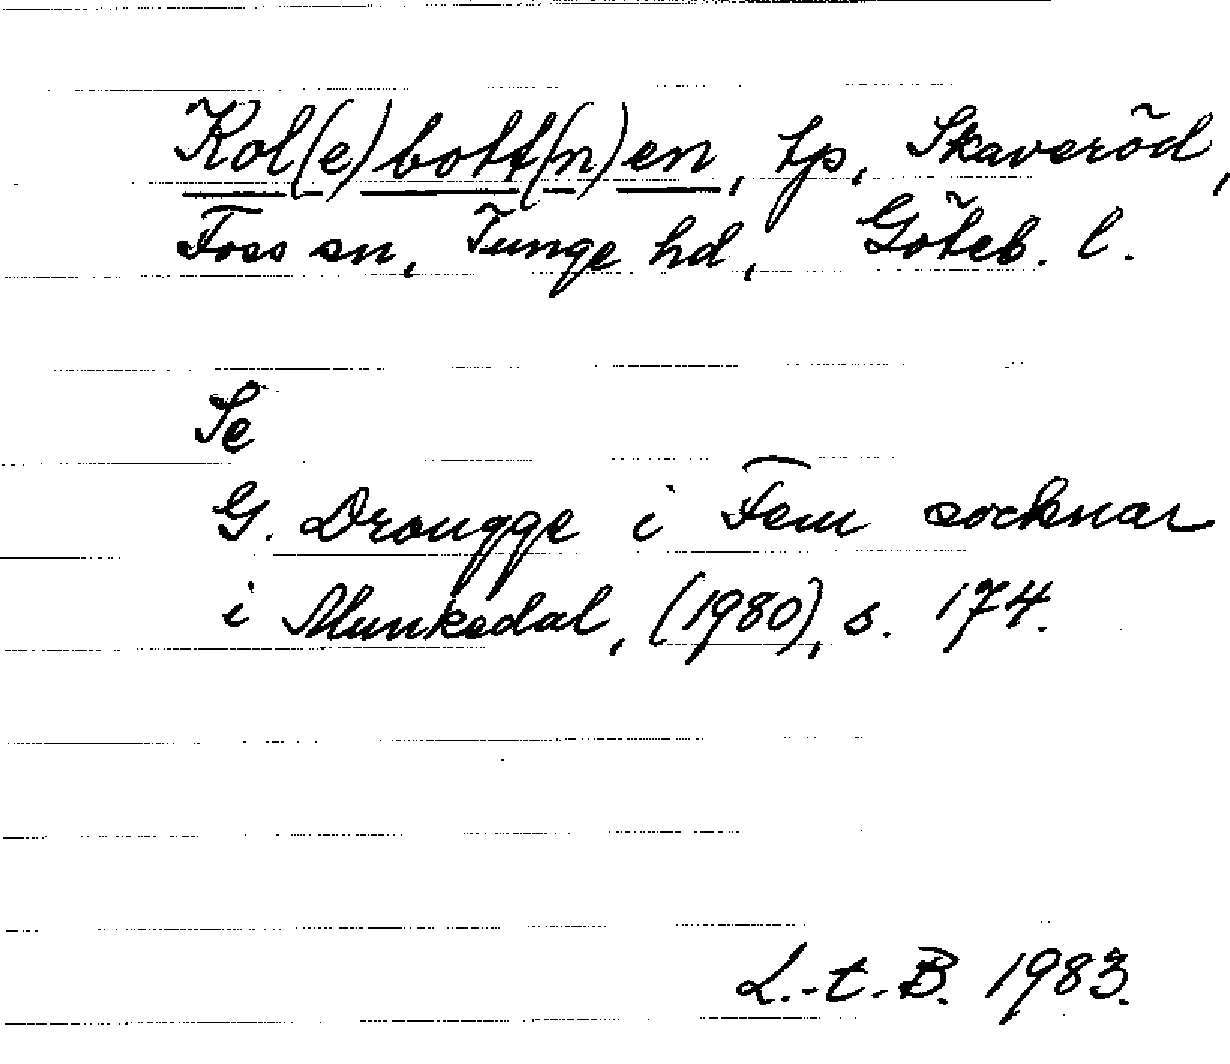 Kol(e)bott(n)en, tp, Skaveröd,
Foss sn, Tunge hd, Göteb. l.
Se
G. Drougge i Fem socknar
i Munkedal, (1980), s. 174.
L.-t. B. 1983.